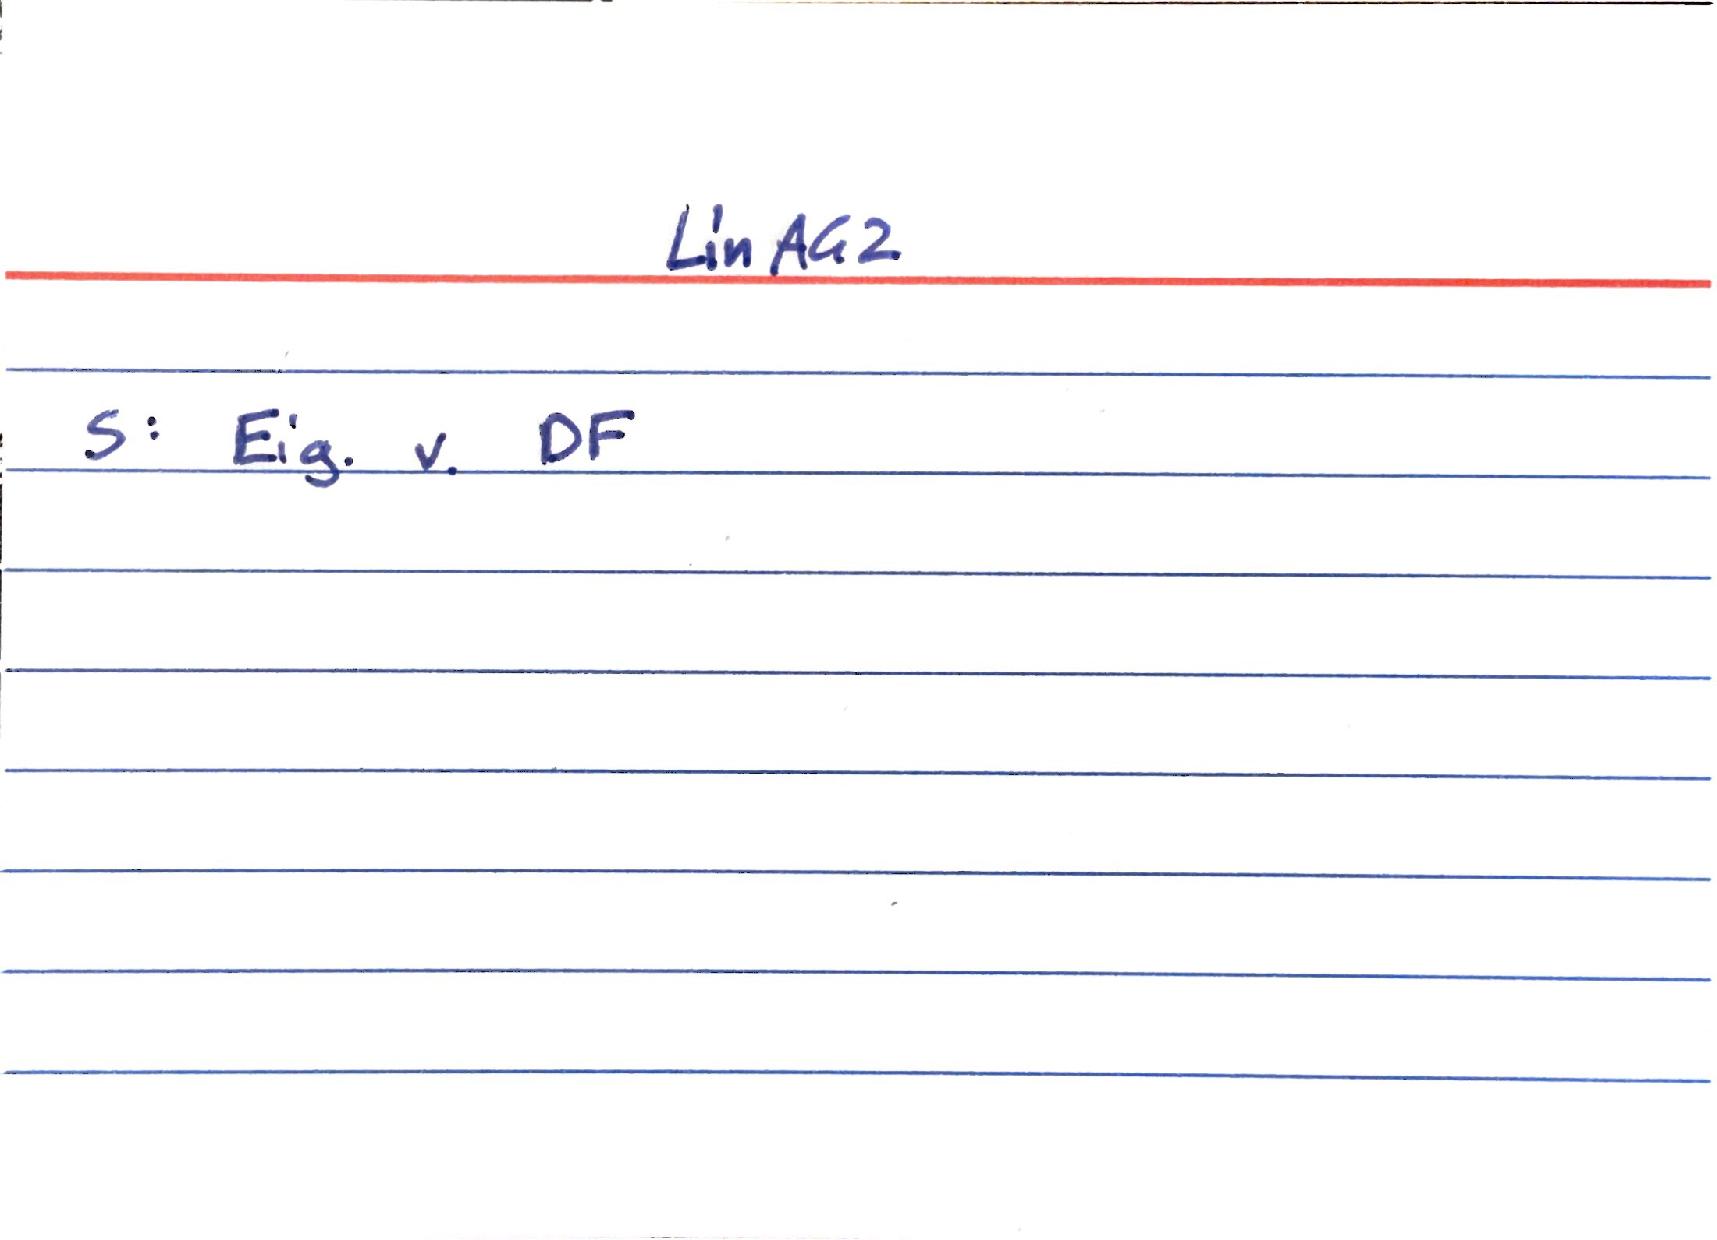 Lin AG2
S: Eig. v. DF